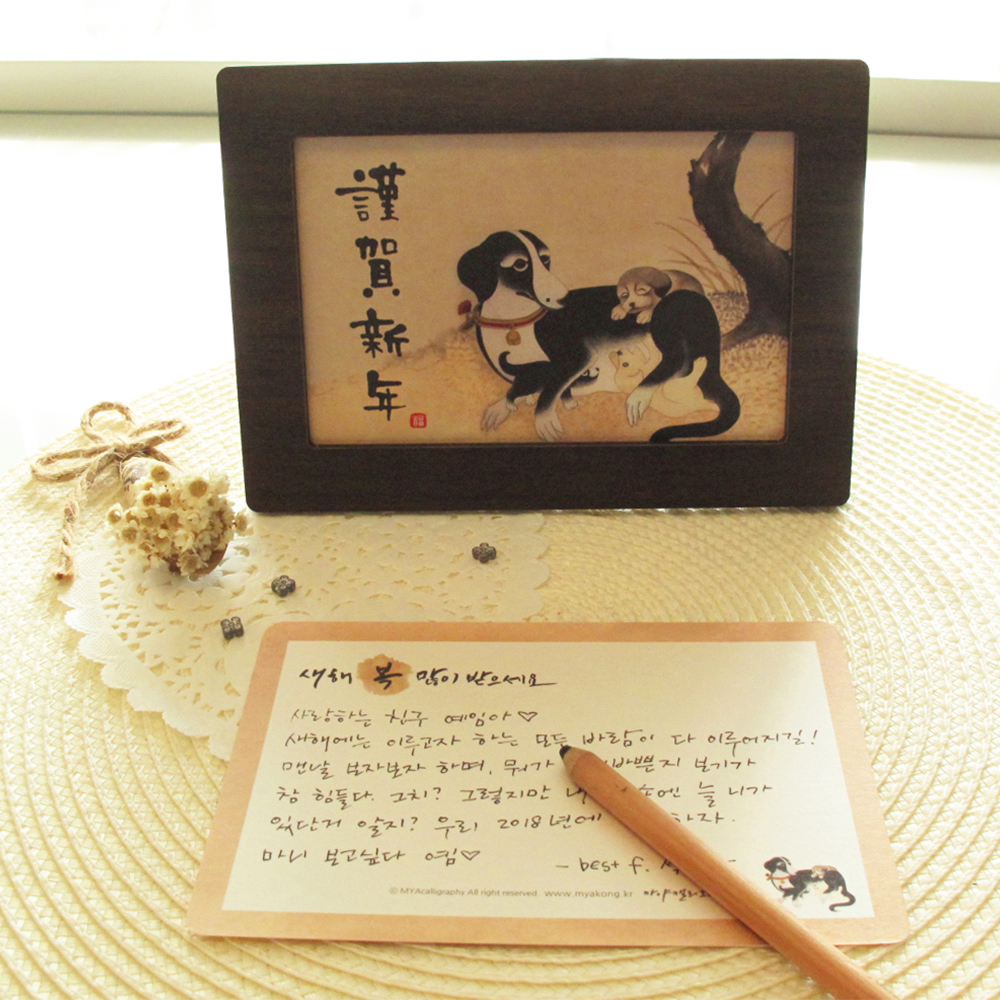 謹
賀
新
年
福
새해 복 많이 받으세요
사랑하는 친구 예임아♡
새해에는 이루고자 하는 모두 바람이 다 이루어지길!
맨날 보자보자 하며, 뭐가 바쁜지 보기가
참 힘들다. 그치? 그렇지만 늘 니가
있단거 알지? 우리 2018년에 하자.
마니 보고싶다 예임♡
- best f.
© MYAcalligraphy All right reserved www.myakong.kr